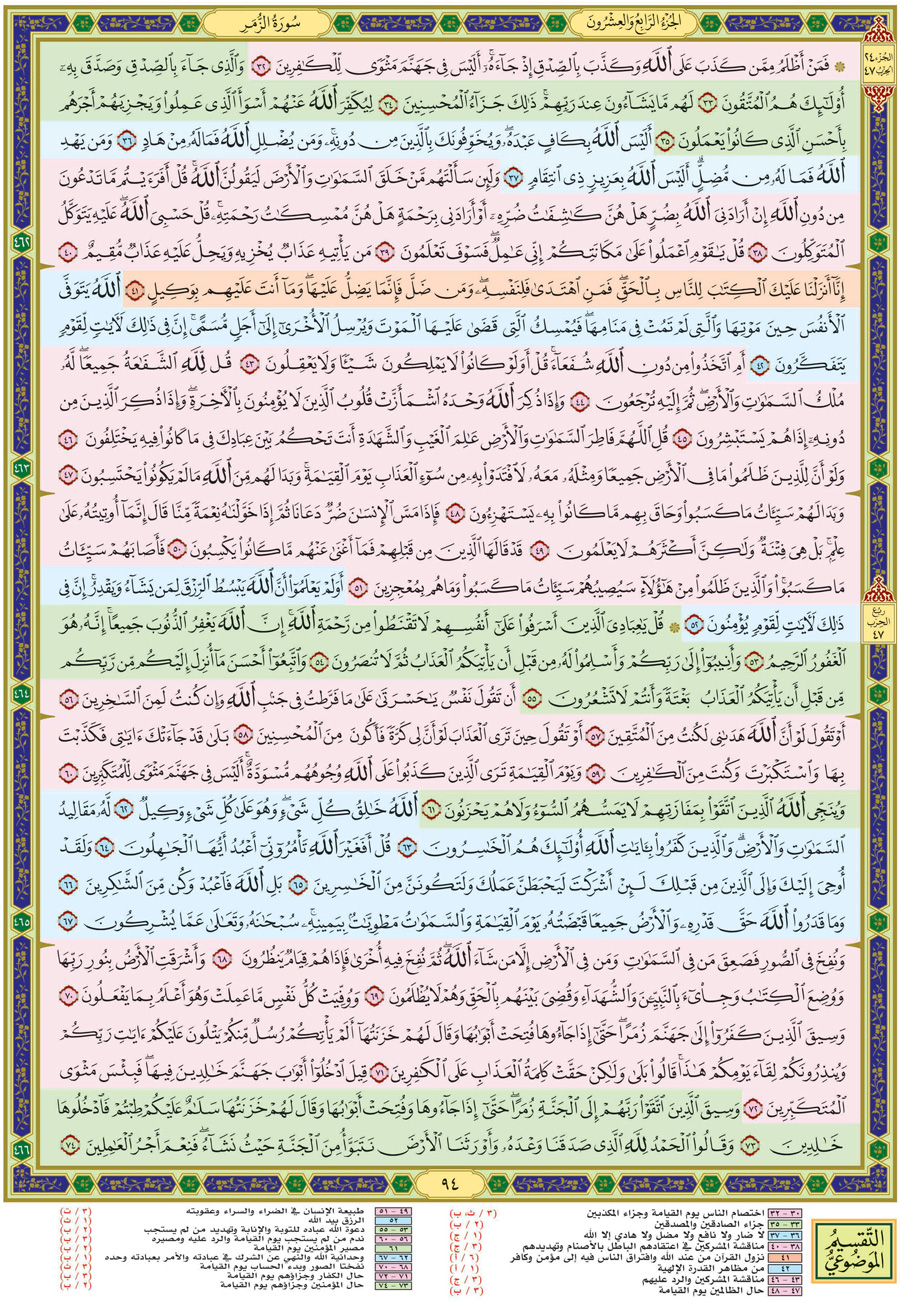 سُورَةُ الزُّمَرِ
الجُزْءُ الرَّابِعُ وَالعِشْرُونَ
الجُزء ٢٤
الحِزب ٤٧
۞ فَمَنْ أَظْلَمُ مِمَّن كَذَبَ عَلَى ٱللَّهِ وَكَذَّبَ بِٱلصِّدْقِ إِذْ جَآءَهُۥٓۚ أَلَيْسَ فِى جَهَنَّمَ مَثْوًى لِّلْكَٰفِرِينَ ٣٢ وَٱلَّذِى جَآءَ بِٱلصِّدْقِ وَصَدَّقَ بِهِۦٓ
أُو۟لَٰٓئِكَ هُمُ ٱلْمُتَّقُونَ ٣٣ لَهُم مَّا يَشَآءُونَ عِندَ رَبِّهِمْۚ ذَٰلِكَ جَزَآءُ ٱلْمُحْسِنِينَ ٣٤ لِيُكَفِّرَ ٱللَّهُ عَنْهُمْ أَسْوَأَ ٱلَّذِى عَمِلُوا۟ وَيَجْزِيَهُمْ أَجْرَهُم
بِأَحْسَنِ ٱلَّذِى كَانُوا۟ يَعْمَلُونَ ٣٥ أَلَيْسَ ٱللَّهُ بِكَافٍ عَبْدَهُۥۖ وَيُخَوِّفُونَكَ بِٱلَّذِينَ مِن دُونِهِۦۚ وَمَن يُضْلِلِ ٱللَّهُ فَمَا لَهُۥ مِنْ هَادٍ ٣٦ وَمَن يَهْدِ
ٱللَّهُ فَمَا لَهُۥ مِن مُّضِلٍّۗ أَلَيْسَ ٱللَّهُ بِعَزِيزٍ ذِى ٱنتِقَامٍ ٣٧ وَلَئِن سَأَلْتَهُم مَّنْ خَلَقَ ٱلسَّمَٰوَٰتِ وَٱلْأَرْضَ لَيَقُولُنَّ ٱللَّهُۚ قُلْ أَفَرَءَيْتُم مَّا تَدْعُونَ
مِن دُونِ ٱللَّهِ إِنْ أَرَادَنِىَ ٱللَّهُ بِضُرٍّ هَلْ هُنَّ كَٰشِفَٰتُ ضُرِّهِۦٓ أَوْ أَرَادَنِى بِرَحْمَةٍ هَلْ هُنَّ مُمْسِكَٰتُ رَحْمَتِهِۦۚ قُلْ حَسْبِىَ ٱللَّهُۖ عَلَيْهِ يَتَوَكَّلُ
ٱلْمُتَوَكِّلُونَ ٣٨ قُلْ يَٰقَوْمِ ٱعْمَلُوا۟ عَلَىٰ مَكَانَتِكُمْ إِنِّى عَٰمِلٌۖ فَسَوْفَ تَعْلَمُونَ ٣٩ مَن يَأْتِيهِ عَذَابٌ يُخْزِيهِ وَيَحِلُّ عَلَيْهِ عَذَابٌ مُّقِيمٌ ٤٠
٤٦٢
إِنَّآ أَنزَلْنَا عَلَيْكَ ٱلْكِتَٰبَ لِلنَّاسِ بِٱلْحَقِّۖ فَمَنِ ٱهْتَدَىٰ فَلِنَفْسِهِۦۖ وَمَن ضَلَّ فَإِنَّمَا يَضِلُّ عَلَيْهَاۖ وَمَآ أَنتَ عَلَيْهِم بِوَكِيلٍ ٤١ ٱللَّهُ يَتَوَفَّى
ٱلْأَنفُسَ حِينَ مَوْتِهَا وَٱلَّتِى لَمْ تَمُتْ فِى مَنَامِهَاۖ فَيُمْسِكُ ٱلَّتِى قَضَىٰ عَلَيْهَا ٱلْمَوْتَ وَيُرْسِلُ ٱلْأُخْرَىٰٓ إِلَىٰٓ أَجَلٍ مُّسَمًّىۚ إِنَّ فِى ذَٰلِكَ لَءَايَٰتٍ لِّقَوْمٍ
يَتَفَكَّرُونَ ٤٢ أَمِ ٱتَّخَذُوا۟ مِن دُونِ ٱللَّهِ شُفَعَآءَۚ قُلْ أَوَلَوْ كَانُوا۟ لَا يَمْلِكُونَ شَيْـًٔا وَلَا يَعْقِلُونَ ٤٣ قُل لِّلَّهِ ٱلشَّفَٰعَةُ جَمِيعًاۖ لَّهُۥ
مُلْكُ ٱلسَّمَٰوَٰتِ وَٱلْأَرْضِۖ ثُمَّ إِلَيْهِ تُرْجَعُونَ ٤٤ وَإِذَا ذُكِرَ ٱللَّهُ وَحْدَهُ ٱشْمَأَزَّتْ قُلُوبُ ٱلَّذِينَ لَا يُؤْمِنُونَ بِٱلْءَاخِرَةِۖ وَإِذَا ذُكِرَ ٱلَّذِينَ مِن
دُونِهِۦٓ إِذَا هُمْ يَسْتَبْشِرُونَ ٤٥ قُلِ ٱللَّهُمَّ فَاطِرَ ٱلسَّمَٰوَٰتِ وَٱلْأَرْضِ عَٰلِمَ ٱلْغَيْبِ وَٱلشَّهَٰدَةِ أَنتَ تَحْكُمُ بَيْنَ عِبَادِكَ فِى مَا كَانُوا۟ فِيهِ يَخْتَلِفُونَ ٤٦
وَلَوْ أَنَّ لِلَّذِينَ ظَلَمُوا۟ مَا فِى ٱلْأَرْضِ جَمِيعًا وَمِثْلَهُۥ مَعَهُۥ لَٱفْتَدَوْا۟ بِهِۦ مِن سُوٓءِ ٱلْعَذَابِ يَوْمَ ٱلْقِيَٰمَةِۚ وَبَدَا لَهُم مِّنَ ٱللَّهِ مَا لَمْ يَكُونُوا۟ يَحْتَسِبُونَ ٤٧
٤٦٣
وَبَدَا لَهُمْ سَيِّـَٔاتُ مَا كَسَبُوا۟ وَحَاقَ بِهِم مَّا كَانُوا۟ بِهِۦ يَسْتَهْزِءُونَ ٤٨ فَإِذَا مَسَّ ٱلْإِنسَٰنَ ضُرٌّ دَعَانَا ثُمَّ إِذَا خَوَّلْنَٰهُ نِعْمَةً مِّنَّا قَالَ إِنَّمَآ أُوتِيتُهُۥ عَلَىٰ
عِلْمٍۭۚ بَلْ هِىَ فِتْنَةٌ وَلَٰكِنَّ أَكْثَرَهُمْ لَا يَعْلَمُونَ ٤٩ قَدْ قَالَهَا ٱلَّذِينَ مِن قَبْلِهِمْ فَمَآ أَغْنَىٰ عَنْهُم مَّا كَانُوا۟ يَكْسِبُونَ ٥٠ فَأَصَابَهُمْ سَيِّـَٔاتُ
مَا كَسَبُوا۟ۚ وَٱلَّذِينَ ظَلَمُوا۟ مِنْ هَٰٓؤُلَآءِ سَيُصِيبُهُمْ سَيِّـَٔاتُ مَا كَسَبُوا۟ وَمَا هُم بِمُعْجِزِينَ ٥١ أَوَلَمْ يَعْلَمُوٓا۟ أَنَّ ٱللَّهَ يَبْسُطُ ٱلرِّزْقَ لِمَن يَشَآءُ وَيَقْدِرُۚ إِنَّ فِى
رُبع الحِزب ٤٧
ذَٰلِكَ لَءَايَٰتٍ لِّقَوْمٍ يُؤْمِنُونَ ٥٢ ۞ قُلْ يَٰعِبَادِىَ ٱلَّذِينَ أَسْرَفُوا۟ عَلَىٰٓ أَنفُسِهِمْ لَا تَقْنَطُوا۟ مِن رَّحْمَةِ ٱللَّهِۚ إِنَّ ٱللَّهَ يَغْفِرُ ٱلذُّنُوبَ جَمِيعًاۚ إِنَّهُۥ هُوَ
ٱلْغَفُورُ ٱلرَّحِيمُ ٥٣ وَأَنِيبُوٓا۟ إِلَىٰ رَبِّكُمْ وَأَسْلِمُوا۟ لَهُۥ مِن قَبْلِ أَن يَأْتِيَكُمُ ٱلْعَذَابُ ثُمَّ لَا تُنصَرُونَ ٥٤ وَٱتَّبِعُوٓا۟ أَحْسَنَ مَآ أُنزِلَ إِلَيْكُم مِّن رَّبِّكُم
مِّن قَبْلِ أَن يَأْتِيَكُمُ ٱلْعَذَابُ بَغْتَةً وَأَنتُمْ لَا تَشْعُرُونَ ٥٥ أَن تَقُولَ نَفْسٌ يَٰحَسْرَتَىٰ عَلَىٰ مَا فَرَّطتُ فِى جَنۢبِ ٱللَّهِ وَإِن كُنتُ لَمِنَ ٱلسَّٰخِرِينَ ٥٦
٤٦٤
أَوْ تَقُولَ لَوْ أَنَّ ٱللَّهَ هَدَىٰنِى لَكُنتُ مِنَ ٱلْمُتَّقِينَ ٥٧ أَوْ تَقُولَ حِينَ تَرَى ٱلْعَذَابَ لَوْ أَنَّ لِى كَرَّةً فَأَكُونَ مِنَ ٱلْمُحْسِنِينَ ٥٨ بَلَىٰ قَدْ جَآءَتْكَ ءَايَٰتِى فَكَذَّبْتَ
بِهَا وَٱسْتَكْبَرْتَ وَكُنتَ مِنَ ٱلْكَٰفِرِينَ ٥٩ وَيَوْمَ ٱلْقِيَٰمَةِ تَرَى ٱلَّذِينَ كَذَبُوا۟ عَلَى ٱللَّهِ وُجُوهُهُم مُّسْوَدَّةٌۚ أَلَيْسَ فِى جَهَنَّمَ مَثْوًى لِّلْمُتَكَبِّرِينَ ٦٠
وَيُنَجِّى ٱللَّهُ ٱلَّذِينَ ٱتَّقَوْا۟ بِمَفَازَتِهِمْ لَا يَمَسُّهُمُ ٱلسُّوٓءُ وَلَا هُمْ يَحْزَنُونَ ٦١ ٱللَّهُ خَٰلِقُ كُلِّ شَىْءٍۖ وَهُوَ عَلَىٰ كُلِّ شَىْءٍ وَكِيلٌ ٦٢ لَّهُۥ مَقَالِيدُ
ٱلسَّمَٰوَٰتِ وَٱلْأَرْضِۗ وَٱلَّذِينَ كَفَرُوا۟ بِـَٔايَٰتِ ٱللَّهِ أُو۟لَٰٓئِكَ هُمُ ٱلْخَٰسِرُونَ ٦٣ قُلْ أَفَغَيْرَ ٱللَّهِ تَأْمُرُوٓنِّىٓ أَعْبُدُ أَيُّهَا ٱلْجَٰهِلُونَ ٦٤ وَلَقَدْ
أُوحِىَ إِلَيْكَ وَإِلَى ٱلَّذِينَ مِن قَبْلِكَ لَئِنْ أَشْرَكْتَ لَيَحْبَطَنَّ عَمَلُكَ وَلَتَكُونَنَّ مِنَ ٱلْخَٰسِرِينَ ٦٥ بَلِ ٱللَّهَ فَٱعْبُدْ وَكُن مِّنَ ٱلشَّٰكِرِينَ ٦٦
وَمَا قَدَرُوا۟ ٱللَّهَ حَقَّ قَدْرِهِۦ وَٱلْأَرْضُ جَمِيعًا قَبْضَتُهُۥ يَوْمَ ٱلْقِيَٰمَةِ وَٱلسَّمَٰوَٰتُ مَطْوِيَّٰتٌۢ بِيَمِينِهِۦۚ سُبْحَٰنَهُۥ وَتَعَٰلَىٰ عَمَّا يُشْرِكُونَ ٦٧
٤٦٥
وَنُفِخَ فِى ٱلصُّورِ فَصَعِقَ مَن فِى ٱلسَّمَٰوَٰتِ وَمَن فِى ٱلْأَرْضِ إِلَّا مَن شَآءَ ٱللَّهُۖ ثُمَّ نُفِخَ فِيهِ أُخْرَىٰ فَإِذَا هُمْ قِيَامٌ يَنظُرُونَ ٦٨ وَأَشْرَقَتِ ٱلْأَرْضُ بِنُورِ رَبِّهَا
وَوُضِعَ ٱلْكِتَٰبُ وَجِا۟ىٓءَ بِٱلنَّبِيِّۦنَ وَٱلشُّهَدَآءِ وَقُضِىَ بَيْنَهُم بِٱلْحَقِّ وَهُمْ لَا يُظْلَمُونَ ٦٩ وَوُفِّيَتْ كُلُّ نَفْسٍ مَّا عَمِلَتْ وَهُوَ أَعْلَمُ بِمَا يَفْعَلُونَ ٧٠
وَسِيقَ ٱلَّذِينَ كَفَرُوٓا۟ إِلَىٰ جَهَنَّمَ زُمَرًاۖ حَتَّىٰٓ إِذَا جَآءُوهَا فُتِحَتْ أَبْوَٰبُهَا وَقَالَ لَهُمْ خَزَنَتُهَآ أَلَمْ يَأْتِكُمْ رُسُلٌ مِّنكُمْ يَتْلُونَ عَلَيْكُمْ ءَايَٰتِ رَبِّكُمْ
وَيُنذِرُونَكُمْ لِقَآءَ يَوْمِكُمْ هَٰذَاۚ قَالُوا۟ بَلَىٰ وَلَٰكِنْ حَقَّتْ كَلِمَةُ ٱلْعَذَابِ عَلَى ٱلْكَٰفِرِينَ ٧١ قِيلَ ٱدْخُلُوٓا۟ أَبْوَٰبَ جَهَنَّمَ خَٰلِدِينَ فِيهَاۖ فَبِئْسَ مَثْوَى
ٱلْمُتَكَبِّرِينَ ٧٢ وَسِيقَ ٱلَّذِينَ ٱتَّقَوْا۟ رَبَّهُمْ إِلَى ٱلْجَنَّةِ زُمَرًاۖ حَتَّىٰٓ إِذَا جَآءُوهَا وَفُتِحَتْ أَبْوَٰبُهَا وَقَالَ لَهُمْ خَزَنَتُهَا سَلَٰمٌ عَلَيْكُمْ طِبْتُمْ فَٱدْخُلُوهَا
خَٰلِدِينَ ٧٣ وَقَالُوا۟ ٱلْحَمْدُ لِلَّهِ ٱلَّذِى صَدَقَنَا وَعْدَهُۥ وَأَوْرَثَنَا ٱلْأَرْضَ نَتَبَوَّأُ مِنَ ٱلْجَنَّةِ حَيْثُ نَشَآءُۖ فَنِعْمَ أَجْرُ ٱلْعَٰمِلِينَ ٧٤
٤٦٦
٩٤
التَّقسِيمُ
المَوضُوعِيُّ
٣٠ - ٣٢ اختصام الناس يوم القيامة وجزاء المكذبين (٣ / ث،ب)
٣٣ - ٣٥ جزاء الصادقين والمصدقين (٢ / ب)
٣٦ - ٣٧ لا ضار ولا نافع ولا مضل ولا هادي إلا الله (١ / ج)
٣٨ - ٤٠ مناقشة المشركين في اعتقادهم الباطل بالأصنام وتهديدهم (٣ / ج)
٤١ نزول القرآن من عند الله وافتراق الناس فيه إلى مؤمن وكافر (٦ / أ)
٤٢ من مظاهر القدرة الإلهية (١ / أ)
٤٣ - ٤٦ مناقشة المشركين والرد عليهم (٣ / ج)
٤٧ - ٤٨ حال الظالمين يوم القيامة (٣ / ب)
٤٩ - ٥١ طبيعة الإنسان في الضراء والسراء وعقوبته (٣ / ت)
٥٢ الرزق بيد الله
٥٣ - ٥٥ دعوة الله عباده للتوبة والإنابة وتهديد من لم يستجب
٥٦ - ٦٠ ندم من لم يستجب يوم القيامة والرد عليه ومصيره
٦١ مصير المؤمنين يوم القيامة
٦٢ - ٦٧ وحدانية الله والنهي عن الشرك في عبادته والأمر بعبادته وحده
٦٨ - ٧٠ نفختا الصور وبدء الحساب يوم القيامة
٧١ - ٧٢ حال الكفار وجزاؤهم يوم القيامة
٧٣ - ٧٤ حال المؤمنين وجزاؤهم يوم القيامة